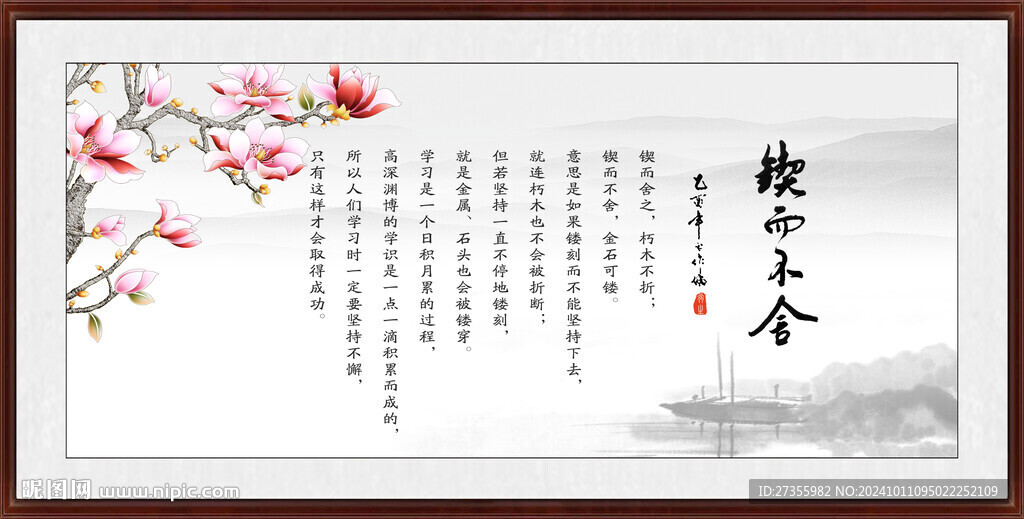 锲而不舍
锲而舍之，朽木不折；
锲而不舍，金石可镂。
意思是如果镂刻而不能坚持下去，
就连朽木也不会被折断；
但若坚持一直不停地镂刻，
就是金属、石头也会被镂穿。
学习是一个日积月累的过程，
高深渊博的学识是一点一滴积累而成的，
所以人们学习时一定要坚持不懈，
只有这样才会取得成功。
昵图网 www.nipic.com
ID:27355982 NO:20241011095022252109